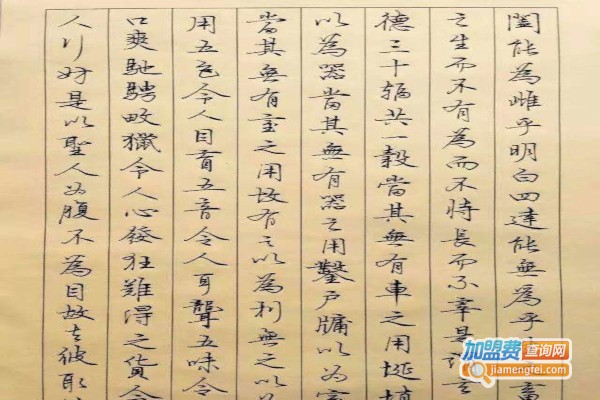 闔能為雌乎明白四達能無為乎畜
之生而不有為而不恃長而不宰是謂玄
德三十辐共一轂當其無有車之用埏埴
以為器當其無有器之用鑿戶牖以為室
當其無有室之用故有之以為利無之以為
用五色令人目盲五音令人耳聾五味令
口爽馳騁畋獵令人心發狂難得之貨令
人行妨是以聖人為腹不為目故去彼取
加盟费查询网
jiamengfei.com